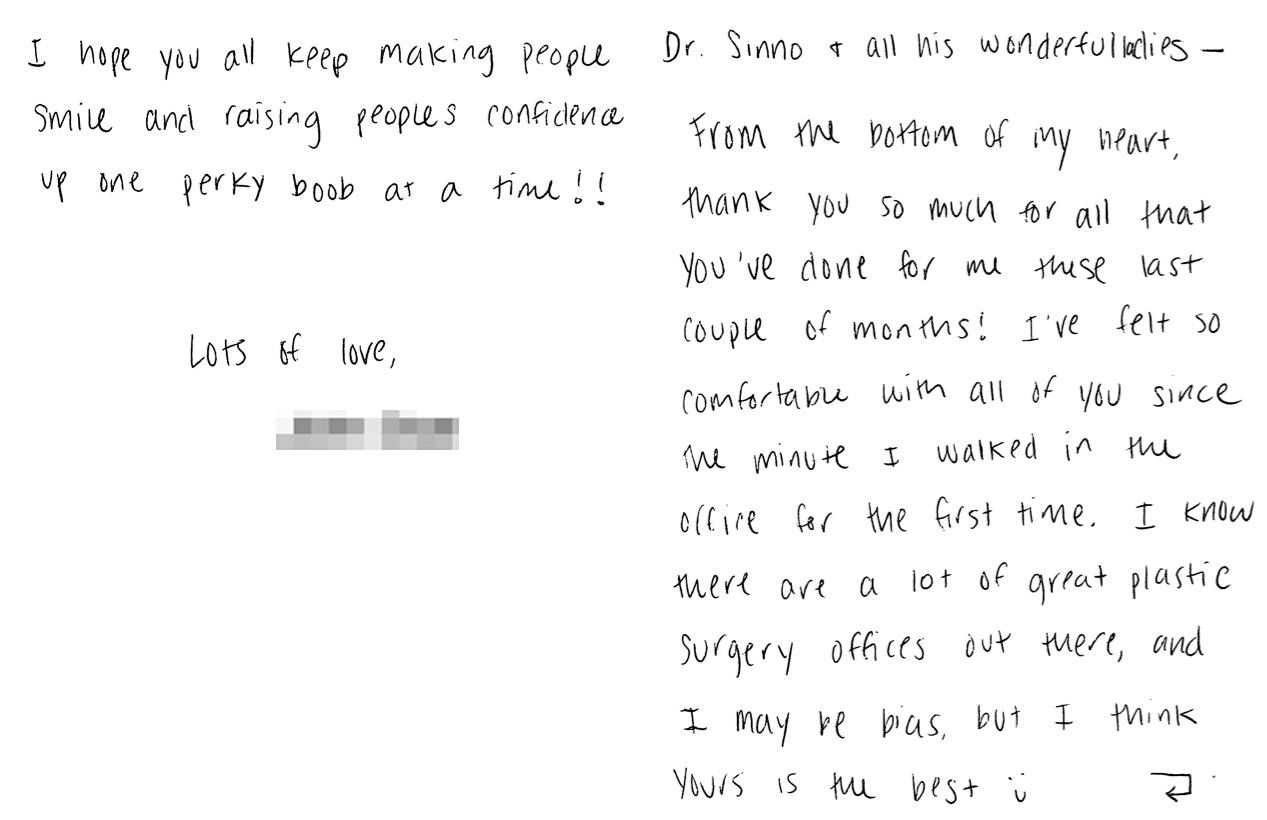 Dr. Sinno + all his wonderful ladies —
From the bottom of my heart,
thank you so much for all that
you've done for me these last
couple of months! I've felt so
comfortable with all of you since
the minute I walked in the
office for the first time. I know
there are a lot of great plastic
surgery offices out there, and
I may be bias, but I think
yours is the best :)
I hope you all keep making people
smile and raising peoples confidence
up one perky boob at a time!!
Lots of love,